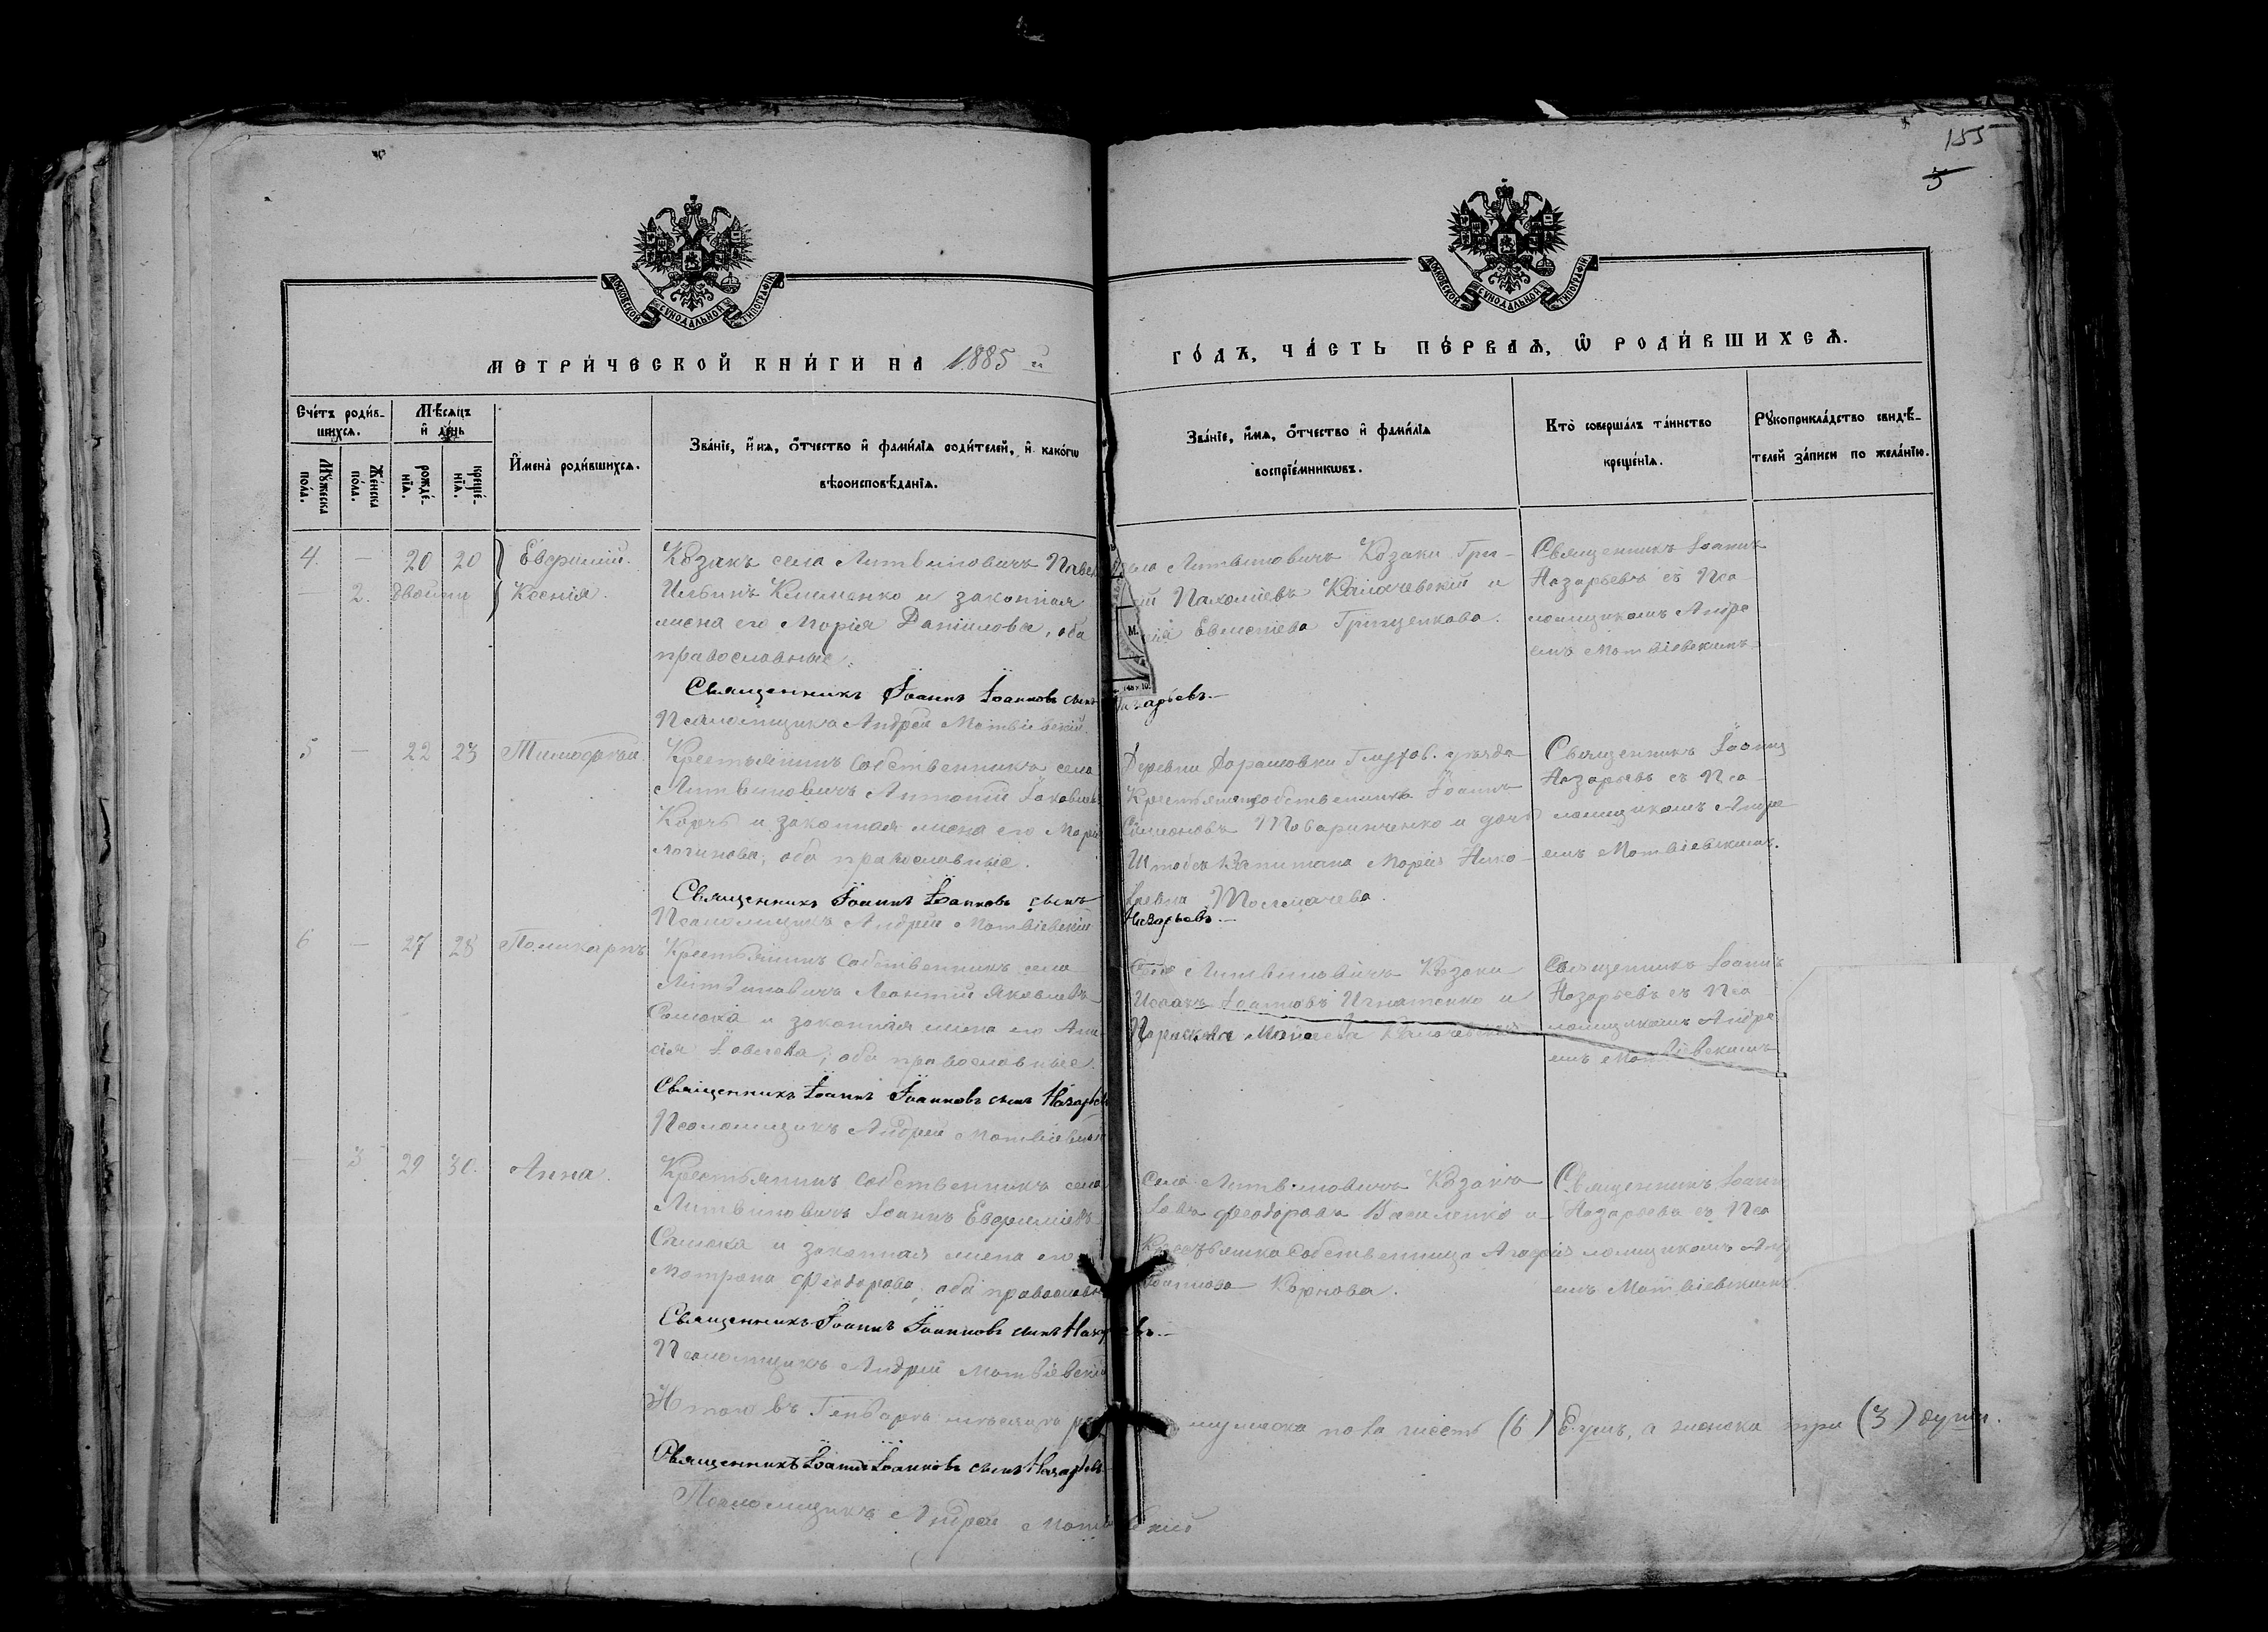 155
5
МОСКОВСКОЙ СѴНОДАЛЬНОЙ ТИПОГРАФІИ
МОСКОВСКОЙ СѴНОДАЛЬНОЙ ТИПОГРАФІИ
МЕТРИ́ЧЕСКОЙ КНИ́ГИ НА 1885 й
ГО́ДЪ, ЧА́СТЬ ПЕ́РВАѦ, Ѡ҆ РОДИ́ВШИХСѦ.
Сче́тъ роди́в-
шихсѧ.
Мѣ́сѧцъ
и҆ де́нь
Мꙋ́жеска
по́ла.
Же́нска
по́ла.
рожде́-
нїѧ.
креще́-
нїѧ.
И҆мена̀ роди́вшихсѧ.
Зва́нїе, и҆́мѧ, ѻ҆́тчество и҆ фами́лїѧ роди́телей, и҆ како́гѡ
вѣроисповѣ́данїѧ.
Зва́нїе, и҆́мѧ, ѻ҆́тчество и҆ фами́лїѧ
воспрїе́мникѡвъ.
Кто̀ соверша́лъ та́инство
креще́нїѧ.
Рꙋкоприкла́дство свидѣ́-
телей за́писи по жела́нїю.
4. — 20 20 Евфимій.
— 2. двойни Ксенія.
Козакъ села Литвиновичъ Павелъ
Ильинъ Клименко и законная
жена его Марія Даніилова, оба
православные.
Священникъ Іоаннъ Іоанновъ сынъ Назарьевъ.
Псаломщикъ Андрей Матвіевскій.
Села Литвиновичъ Козаки Гри-
Пахоміевъ Калачевскій и
Евменіева Грищенкова.
Священникъ Іоаннъ
Назарьевъ съ Пса-
ломщикомъ Андре
емъ Матвіевскимъ.
5 — 22 23 Тимофей.
Крестьянинъ собственникъ села
Литвиновичъ Антоній Іаковлевъ
Корчъ и законная жена его Марія
Логинова, оба православные.
Священникъ Іоаннъ Іоанновъ сынъ
Назарьевъ.
Псаломщикъ Андрей Матвіевскій
Деревни Дорошовки Глухов. уѣзда
Крестьянинъ собственникъ Іоаннъ
Симоновъ Товаринченко и дочь
Штабсъ Капитана Марія Нико-
лаевна Толмачева.
Священникъ Іоаннъ
Назарьевъ съ Пса-
ломщикомъ Андре
емъ Матвіевскимъ.
6 — 27 28 Поликарпъ
Крестьянинъ собственникъ села
Литвиновичъ Леонтій Яковлевъ
Самоха и законная жена его Ана
сія Іовлева, оба православные.
Священникъ Іоаннъ Іоанновъ сынъ Назарьевъ
Псаломщикъ Андрей Матвіевскій
Села Литвиновичъ Козаки
Исаакъ Іоанновъ Игнатенко и
Параскева Моисеева
Священникъ Іоаннъ
Назарьевъ съ Пса
ломщикомъ Андре
емъ Матвіевскимъ
3 29 30. Анна.
Крестьянинъ собственникъ села
Литвиновичъ Іоаннъ Евфиміевъ
Самоха и законная жена его
Матрона Феодорова, оба православные
Священникъ Іоаннъ Іоанновъ сынъ Назарьевъ.
Псаломщикъ Андрей Матвіевскій
Села Литвиновичъ Козакъ
Іовъ Феодоровъ Василенко и
Крестьянка собственница Агафія
Іоаннова Корнова.
Священникъ Іоаннъ
Назарьевъ съ Пса
ломщикомъ Андре
емъ Матвіевскимъ.
Итого въ Генварѣ мѣсяцѣ мужеска пола шесть (6) душъ, а женска три (3) души.
Священникъ Іоаннъ Іоанновъ сынъ Назарьевъ
Псаломщикъ Андрей Матвіевскій